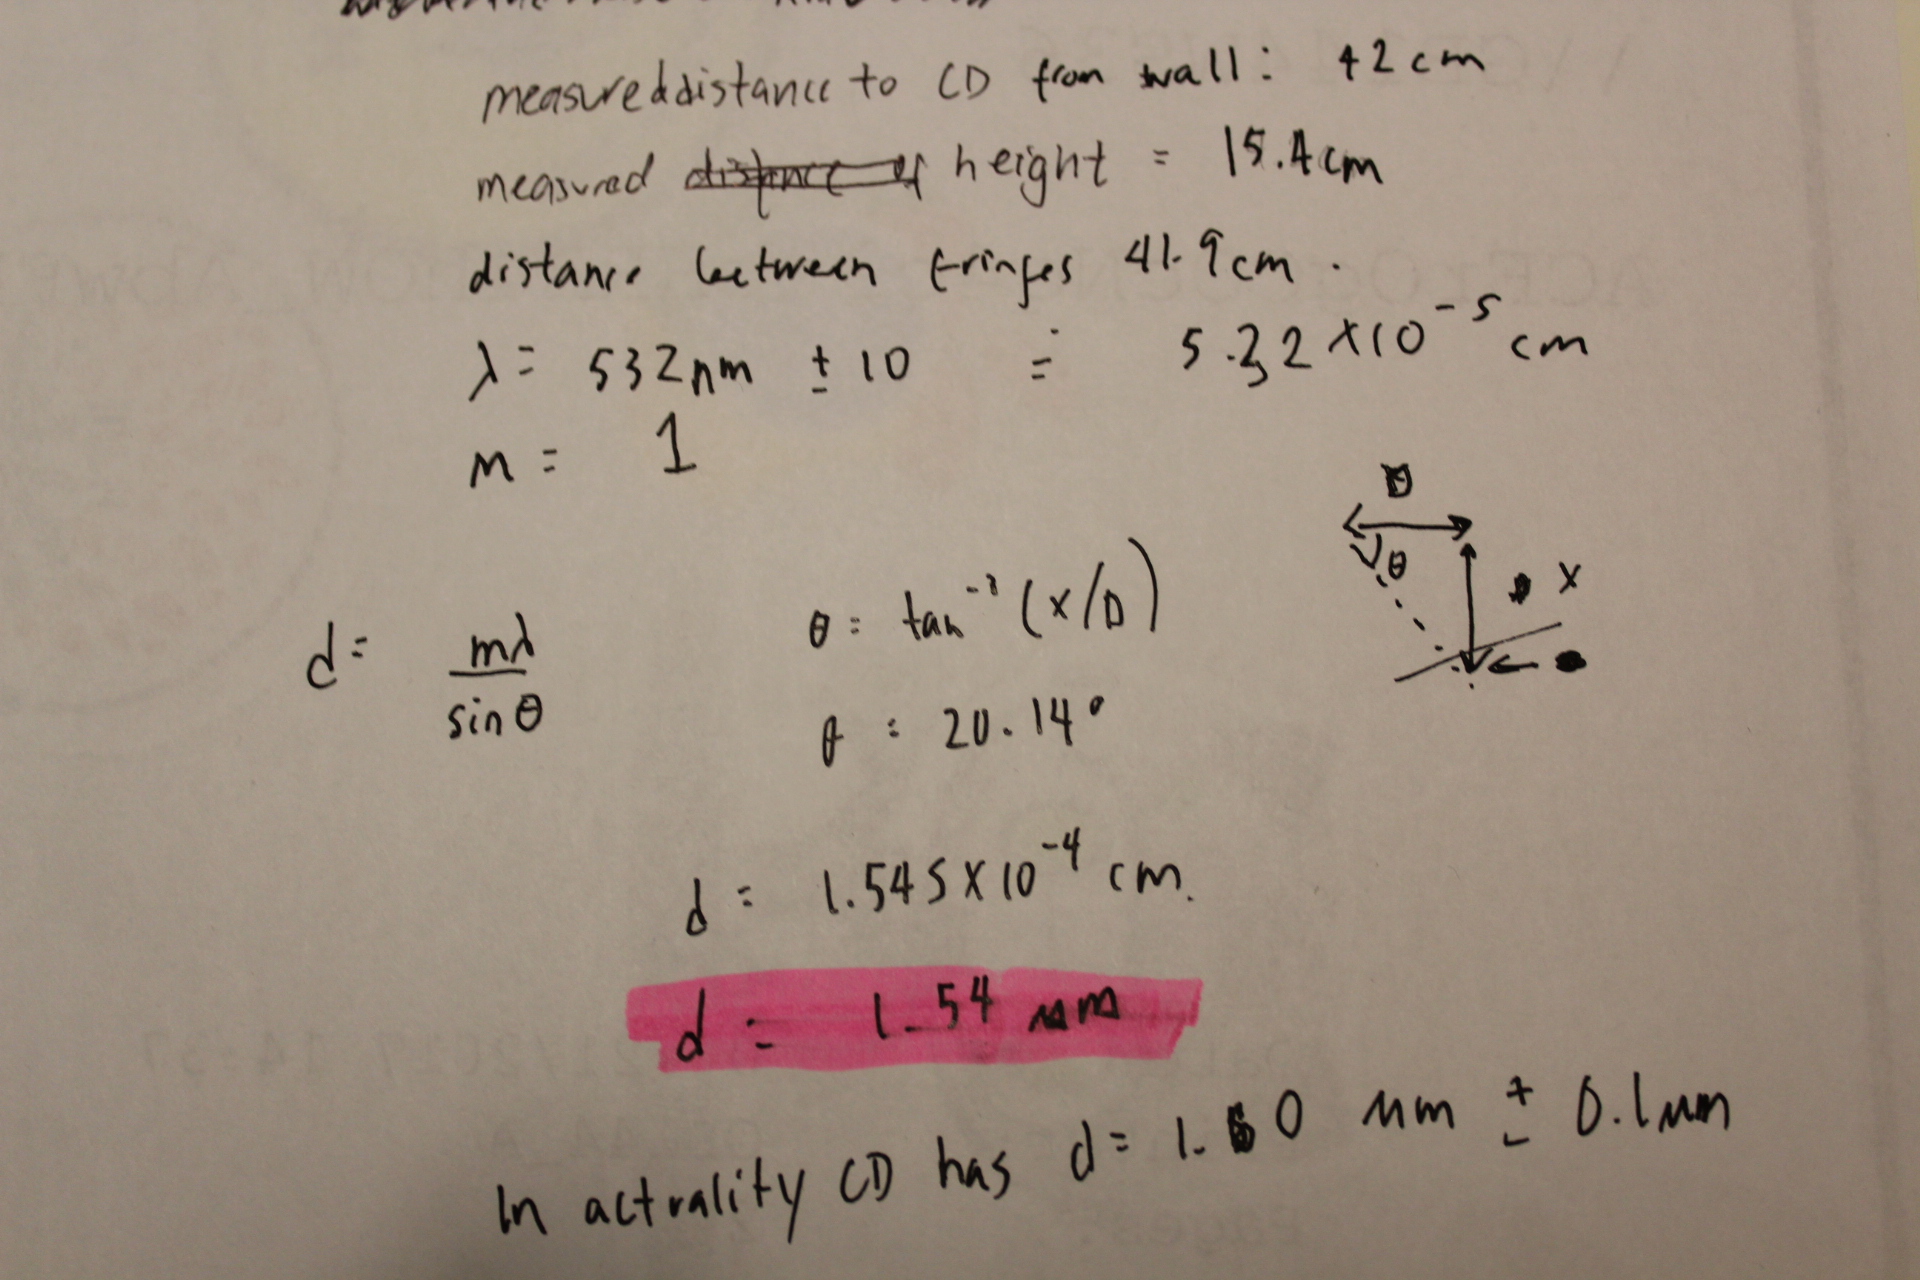 measured distance to CD from wall: 42 cm
measured height = 15.4 cm
distance between fringes 41.9 cm.
λ = 532 nm ± 10 = 5.32 x 10⁻⁵ cm
m = 1
D
θ
x
d = mλ / sin θ
θ = tan⁻¹ (x/D)
θ = 20.14°
d = 1.545 X 10⁻⁴ cm.
d = 1.54 μm
In actrality CD has d = 1.60 μm ± 0.1 μm